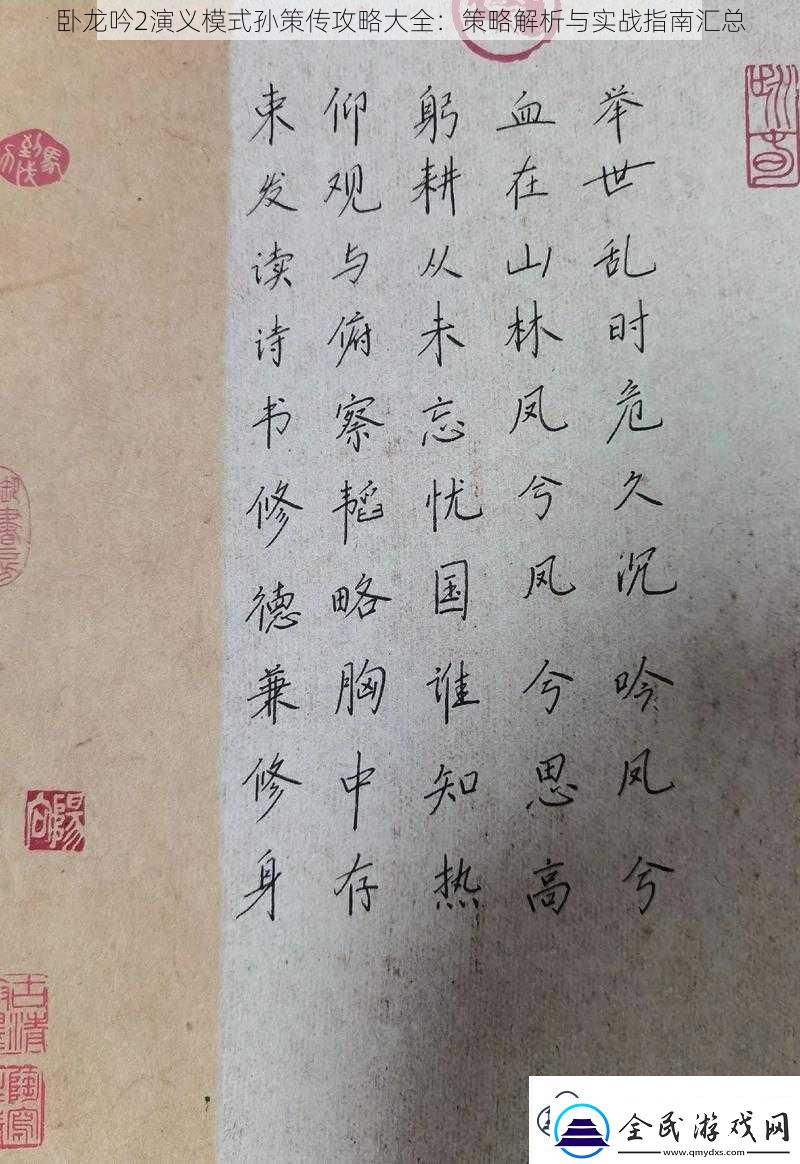 卧龙吟2演义模式孙策传攻略大全：策略解析与实战指南汇总
束发读诗书修德兼修身
仰观与俯察韬略胸中存
躬耕从未忘忧国谁知热
血在山林凤兮凤兮思高
举世乱时危久沉吟凤兮
全民游戏网
www.qmydxs.com